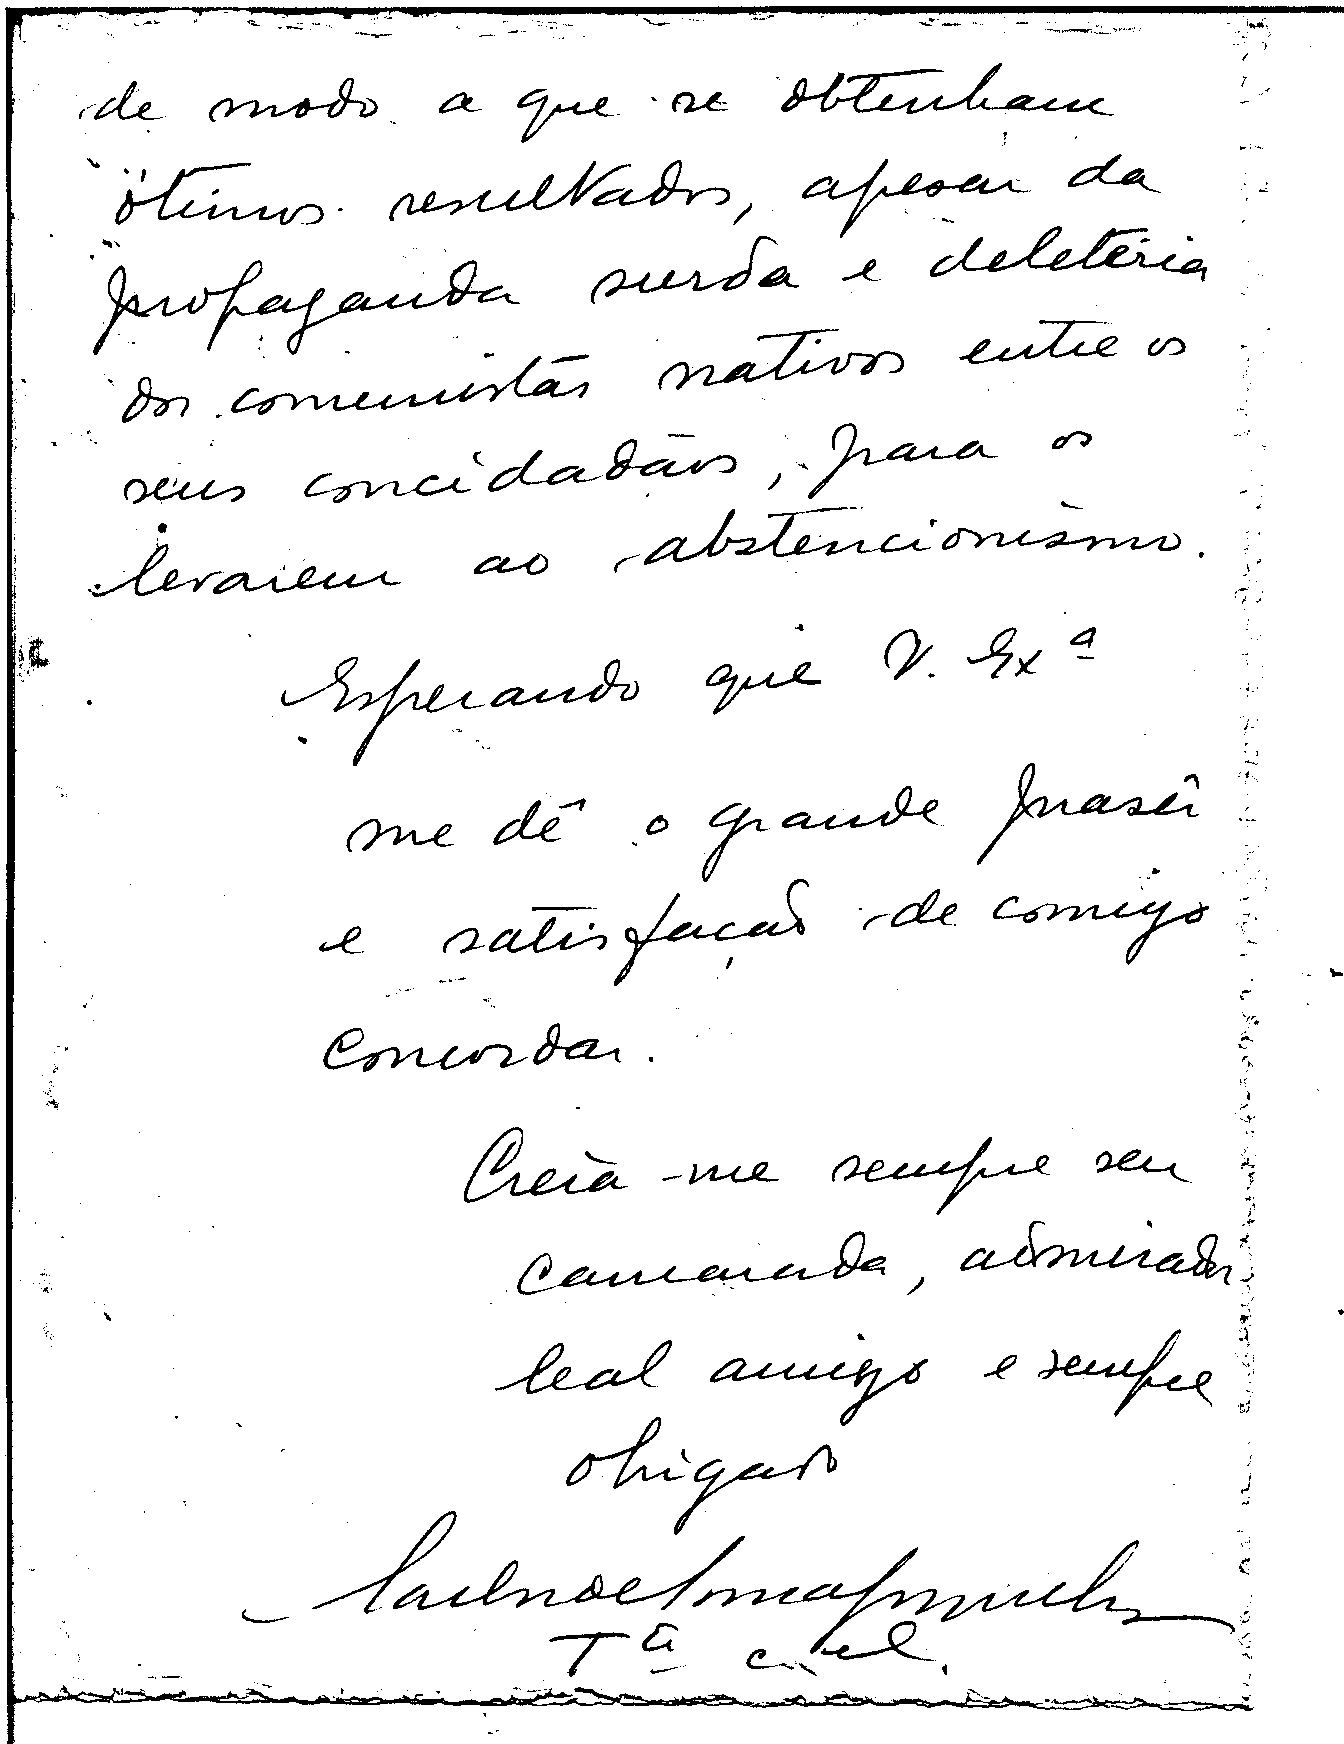 de modo a que se obtenham
ótimos resultados, apesar da
propaganda surda e deletéria
dos comunistas nativos entre os
seus concidadãos, para os
levarem ao abstencionismo.
Esperando que V. Exª
me dê o grande praser
e satisfação de comigo
concordar.
Creia-me sempre seu
camarada, admirador
leal amigo e sempre
obrigado